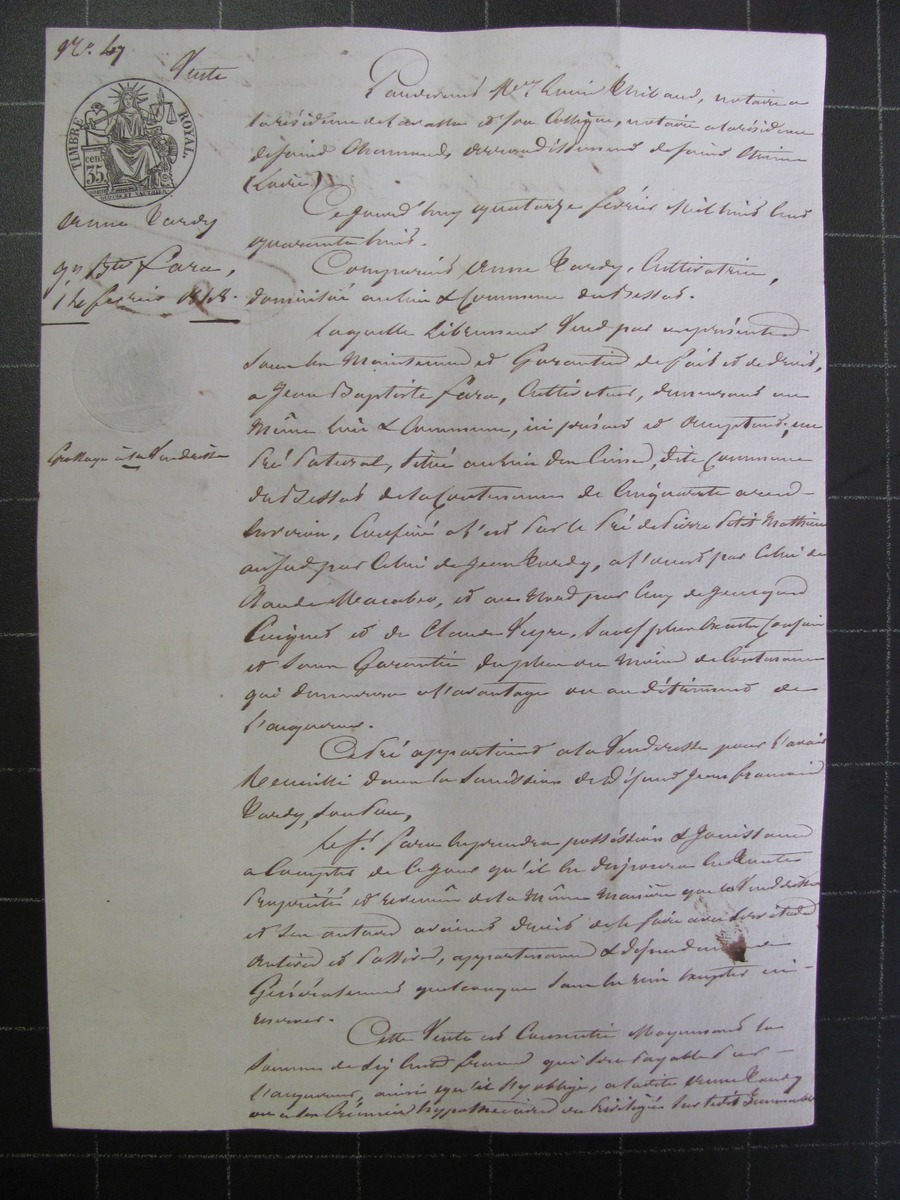 N° 47
Vente
TIMBRE ROYAL
cent. 35
Anne Tardy
Jn Bte Fara,
14 février 1848.
Grossoyé à la Venderesse
Pardevant Me Louis Thibaud, notaire a
la résidence de et son Collègue, notaire a la résidence
de saint Chamond, arrondissement de saint Etienne
(Loire)
Ce jourd'huy quatorze février Mil huit cent
quarante huit.
Comparait Anne Tardy, Cultivatrice,
domiciliée au lieu & Commune du Bessat.
Laquelle librement Vend par ces présentes
sous la Maintenue et Garantie de fait et de droit,
a Jean Baptiste Fara, Cultivateur, demeurant au
Même lieu & Commune, ici présent et acceptant, un
Pré Patural, situé au lieu dite Commune
du Bessat de la Contenance de Cinquante ares
environ, Confiné a l'est par le Pré de Pierre Petit Mathieu
au sud par Celui de Jean Tardy, a l'ouest par Celui de
Claude et au Nord par Ceux de
et de Claude Veyre, sauf plus exacts Confins
et sans Garantie du plus ou Moins de Contenance
qui demeurera a l'avantage ou au détriment de
l'acquéreur.
Ce Pré appartient a la Venderesse pour l'avoir
Recueilli dans la Succession de Défunt Jean francois
Tardy, son Père,
Le sr. Fara en prendra possession & Jouissance
a Compter de ce jour qu'il en disposera en toute
Propriété et revenus de la Même Manière que la Venderesse
et ses auteurs avaient droit de le faire avec servitudes
actives et Passives, appartenances & dépendances
Généralement quelconques sans en rien excepter ni
reserver.
Cette Vente est Consentie Moyennant la
Somme de Six Cents francs qui sera payable par
l'acquéreur, ainsi qu'il s'y oblige, a ladite Anne Tardy
ou a ses Créanciers hypothécaires ou Privilégiés sur ledit Immeuble